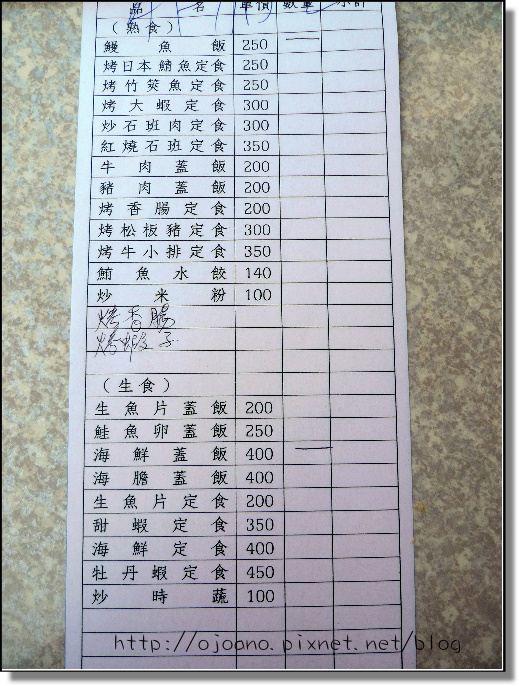 品 名 單價 數量 小計
（熟食）
鰻魚飯 250
烤日本鯖魚定食 250
烤竹筴魚定食 250
烤大蝦定食 300
炒石班肉定食 300
紅燒石班定食 350
牛肉蓋飯 200
豬肉蓋飯 200
烤香腸定食 200
烤松板豬定食 300
烤牛小排定食 350
鮪魚水餃 140
炒米粉 100
烤香腸
烤蝦子
（生食）
生魚片蓋飯 200
鮭魚卵蓋飯 250
海鮮蓋飯 400
海膽蓋飯 400
生魚片定食 200
甜蝦定食 350
海鮮定食 400
牡丹蝦定食 450
炒時蔬 100
http://ojoano.pixnet.net/blog